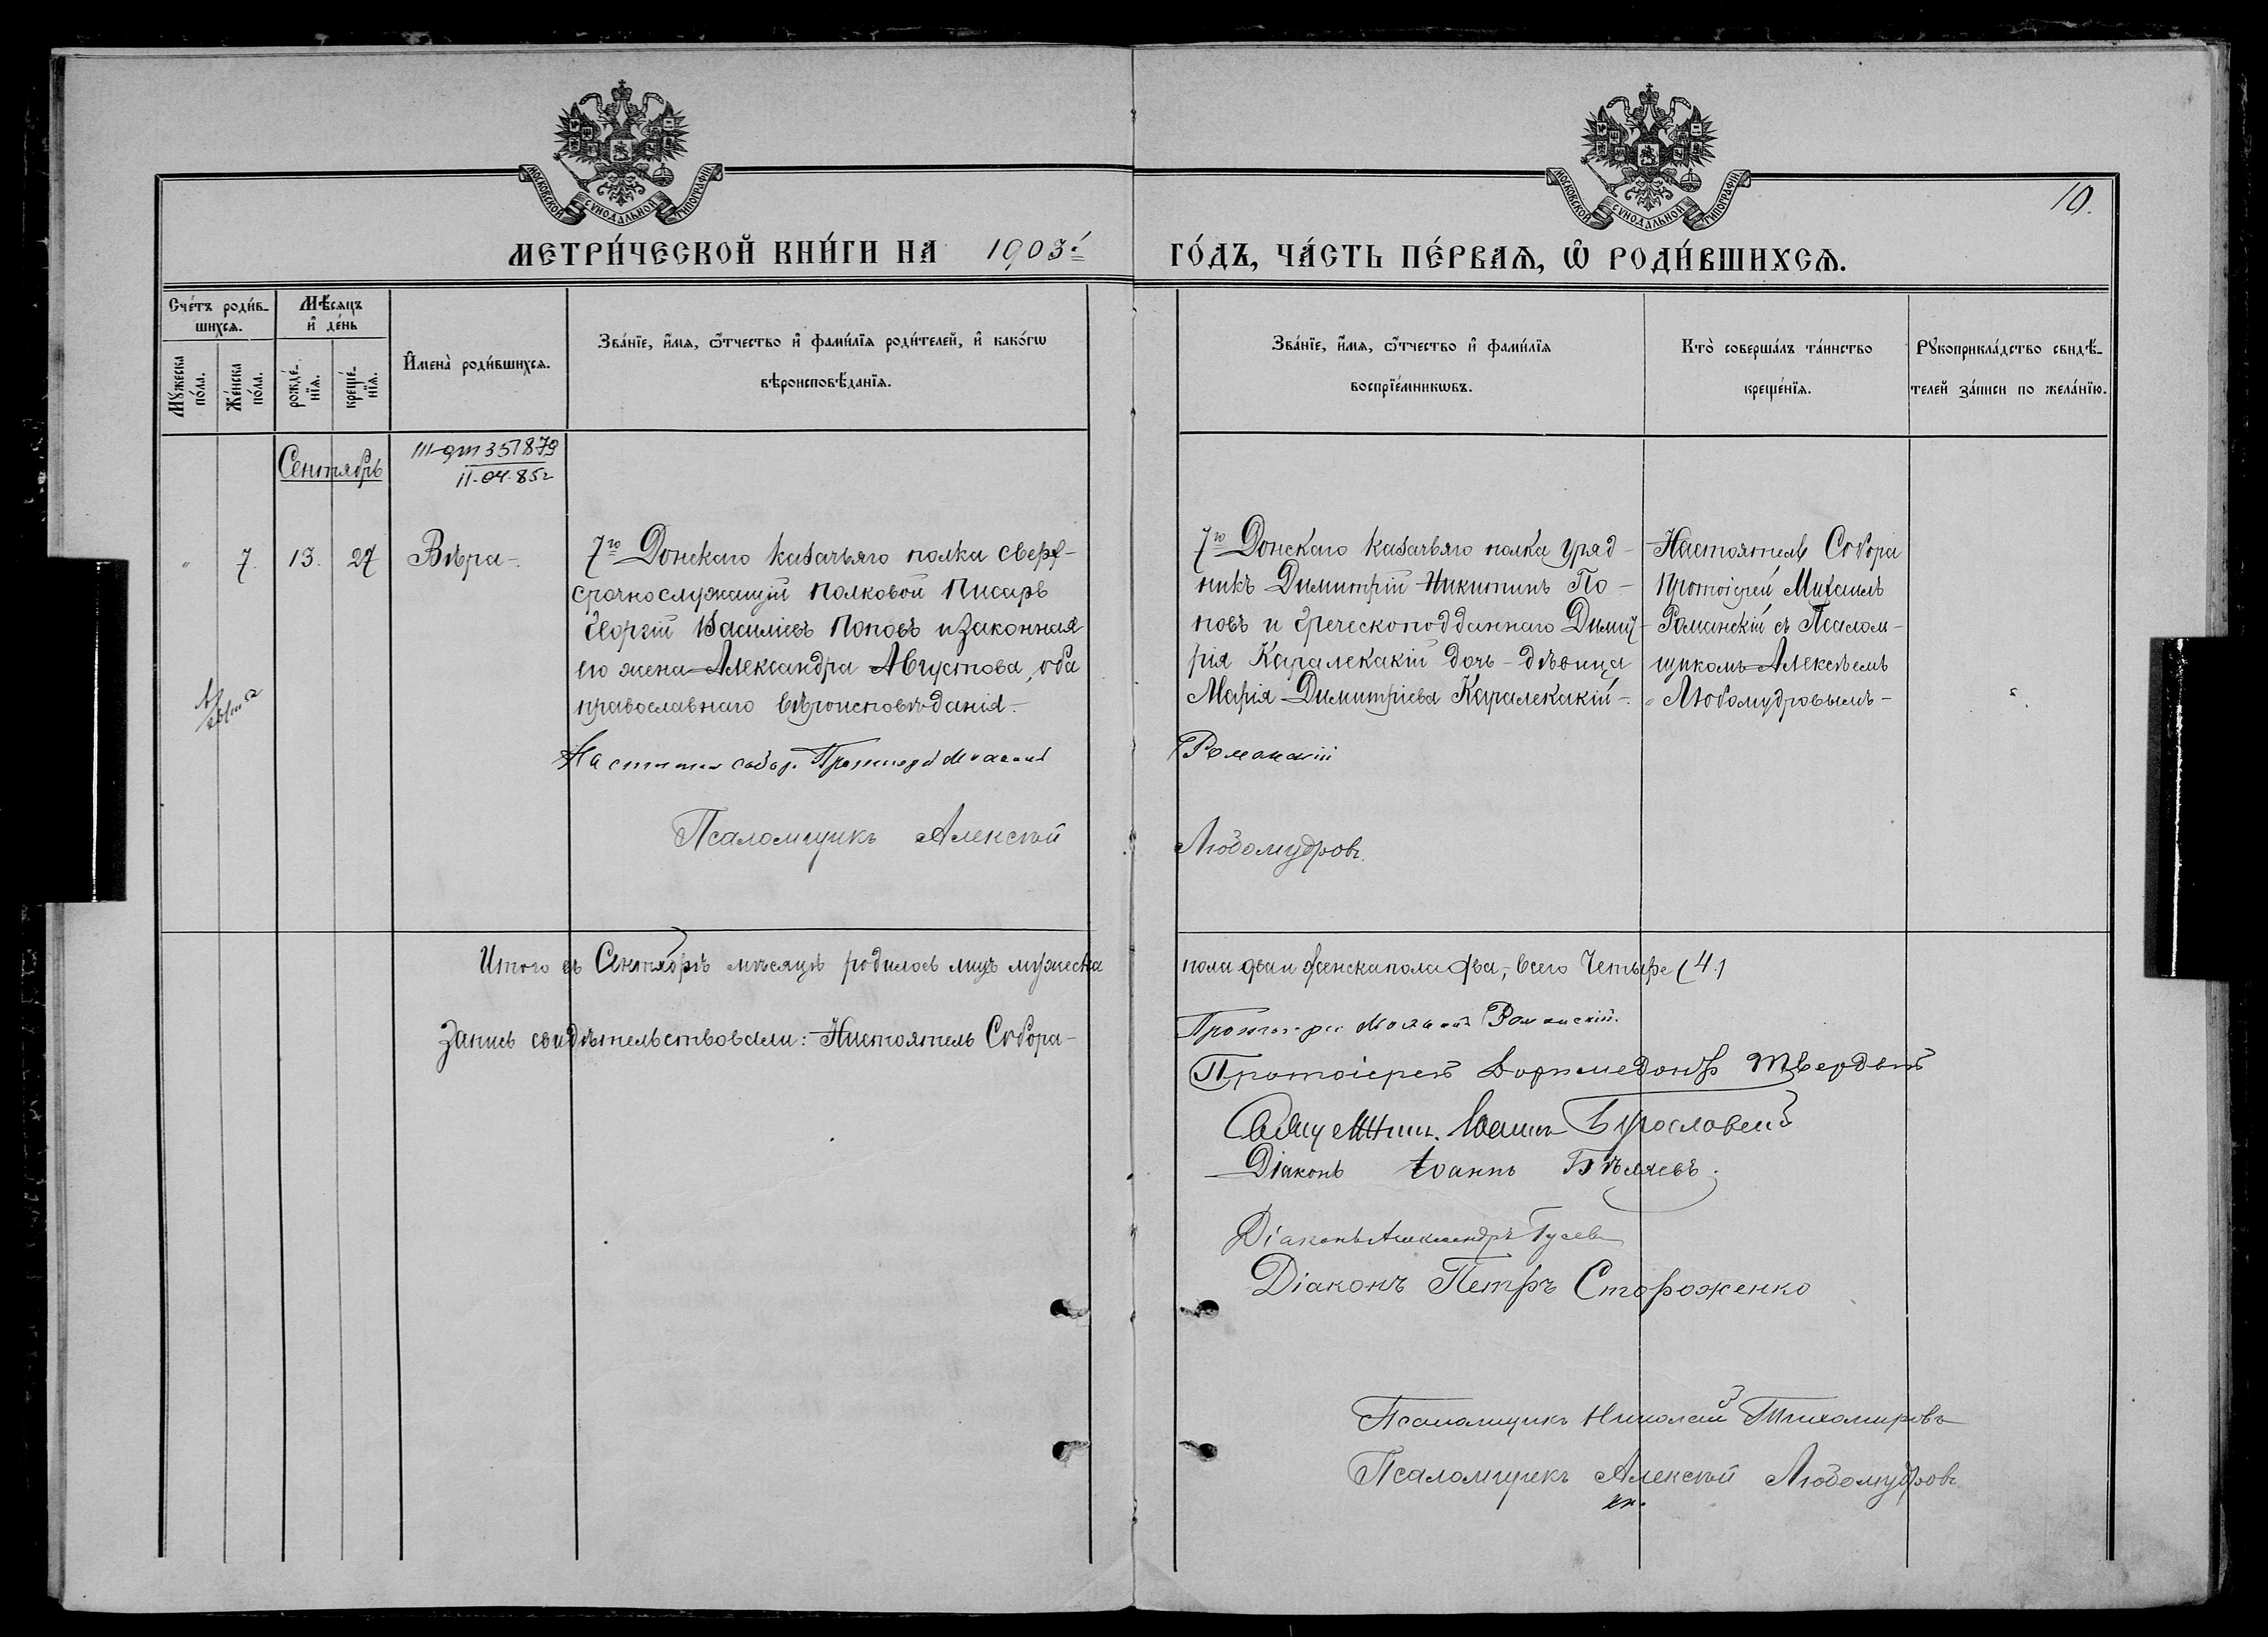 МОСКОВСКОЙ СУНОДАЛЬНОЙ ТИПОГРАФІИ
МОСКОВСКОЙ СУНОДАЛЬНОЙ ТИПОГРАФІИ
10.
МЕТРИ́ЧЕСКОЙ КНИ́ГИ НА 1903й
ГО́ДЪ, ЧА́СТЬ ПЕ́РВАѦ, Ѡ РОДИ́ВШИХСѦ.
Сче́тъ роди́в-
шихсѧ.
Мꙋ́жеска по́ла.
Же́нска по́ла.
Мѣ́сѧцъ
и҆ де́нь
рожде́-
нїѧ.
креще́-
нїѧ.
И҆мена̀ роди́вшихсѧ.
Зва́нїе, и҆́мѧ, ѻ҆́тчество и҆ фами́лїѧ роди́телей, и҆ како́гѡ
вѣроисповѣ́данїѧ.
Зва́нїе, и҆́мѧ, ѻ҆́тчество и҆ фами́лїѧ
воспрїе́мникѡвъ.
Кто̀ соверша́лъ та́инство
креще́нїѧ.
Рꙋкоприкла́дство свидѣ́-
телей за́писи по жела́нїю.
Сентябрь
351879
11.04.85г
" 7. 13. 27 Вѣра-.
7го Донскаго казачьяго полка сверх-
срочнослужащій полковой писарь
Георгій Васильевъ Поповъ и законная
его жена Александра Августова, оба
православнаго вѣроисповѣданія.-
7го Донскаго казачьяго полка уряд-
никъ Димитрій Никитинъ По-
повъ и греческоподданнаго Димит-
рія Каралекакій дочь-дѣвица
Марія Димитріева Каралекакій-.
Настоятель Собора
Протоіерей Михаилъ
Романскій съ Псалом-
щикомъ Алексѣемъ
Любомудровымъ-
Протоіерей Михаилъ
Романскій
Псаломщикъ Алексѣй
Любомудровъ.
Итого въ Сентябрѣ мѣсяцѣ родилось лицъ мужеска
пола два и женска пола два, всего Четыре (4.)
Запись свидѣтельствовали: Настоятель Собора-
Протоіерей Михаилъ Романскій.
Протоіерей Доримедонтъ Твердый
Іоаннъ
Діаконъ Іоаннъ Бѣляевъ.
Діаконъ Александръ Гусевъ
Діаконъ Петръ Стороженко
Псаломщикъ Николай Тихомировъ
Псаломщикъ Алексѣй Любомудровъ